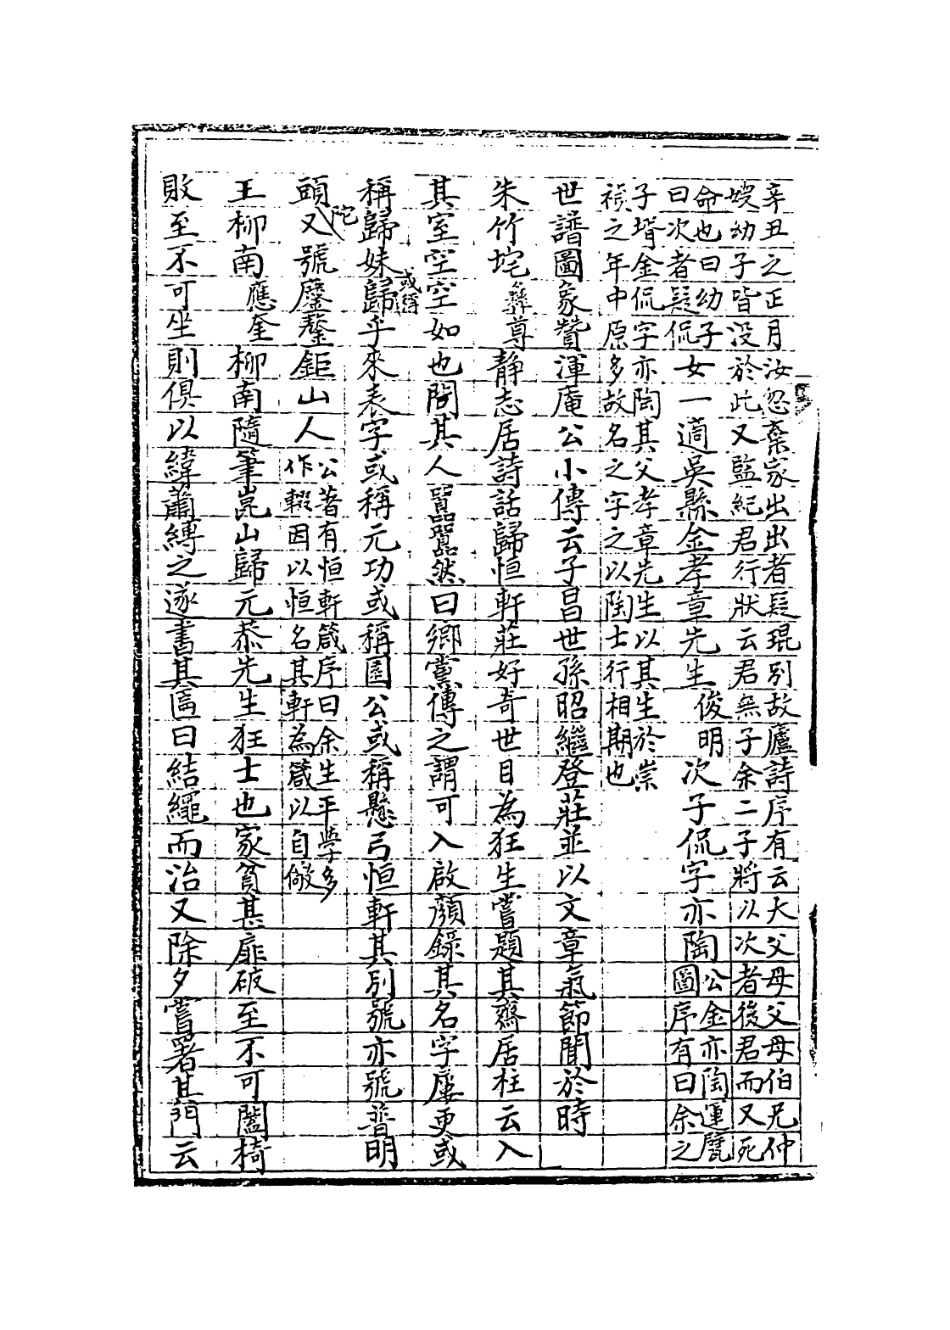 辛丑之正月汝忽棄家出出者疑琨别故廬詩序有云大父母父母伯兄仲
嫂幼子皆没於此又監紀君行狀云君無子余二子將以次者後君而又死
命也曰幼子
曰次者疑侃
女一適吳縣金孝章先生俊明次子侃字亦陶
公金亦陶運甓
圖序有曰余之
子壻金侃字亦陶其父孝章先生以其生於崇
禎之年中原多故名之字之以陶士行相期也
世譜圖象贊渾庵公小傳云子昌世孫昭繼登莊並以文章氣節聞於時
朱竹垞彝尊靜志居詩話歸恒軒莊好奇世目為狂生嘗題其齋居柱云入
其室空空如也問其人囂囂然曰鄉黨傳之謂可入啟顏錄其名字屢更或
稱歸妹或稱歸乎來表字或稱元功或稱園公或稱懸弓恒軒其别號亦號普明
頭陀又號鏖鏊鉅山人
公著有恒軒箴序曰余生平學多
作輟因以恒名其軒為箴以自儆
王柳南應奎柳南隨筆崑山歸元恭先生狂士也家貧甚扉破至不可闔椅
敗至不可坐則俱以緯蕭縛之遂書其匾曰結繩而治又除夕嘗署其門云